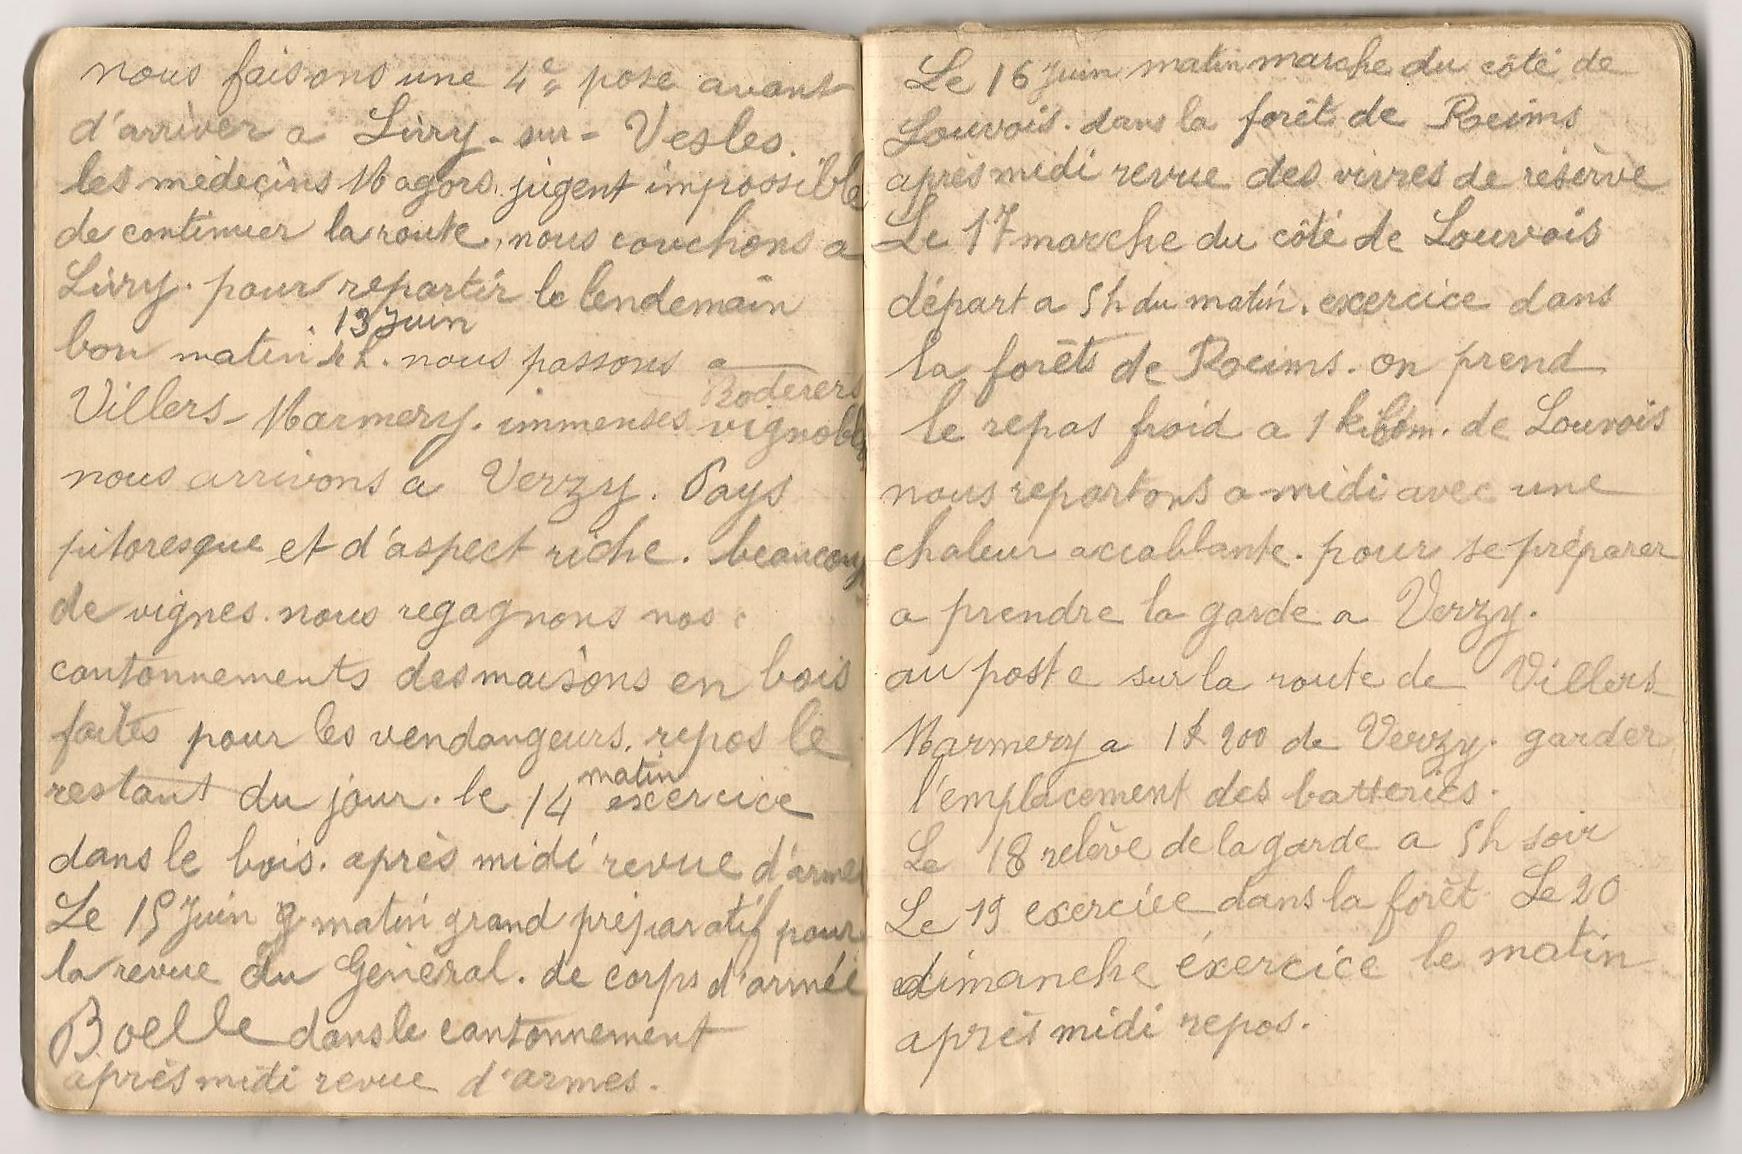 nous faisons une 4e pose avant
d'arriver a Livry-sur-Vesles.
les médeçins Magors, jugent impossible
de continuer la route, nous couchons a
Livry. pour repartir le lendemain
13 Juin
bon matin 4h. nous passons a
Roderers
Villers-Marmery. immenses vignobles
nous arrivons a Verzy. Pays
pitoresque et d'aspect riche. beaucoup
de vignes. nous regagnons nos
cantonnements des maisons en bois
faites pour les vendangeurs. repos le
restant du jour. le 14 exercice
matin
dans le bois. après midi revue d'arme
Le 15 Juin matin grand préparatif pour
la revue du Général. de corps d'armée
Boelle dans le cantonnement
après midi revue d'armes.
Le 16 Juin matin marche du côté de
Louvois. dans la forêt de Reims
après midi revue des vivres de réserve
Le 17 marche du côté de Louvois
départ a 5h du matin. exercice dans
la forêts de Reims. on prend
le repas froid a 1 kilom. de Louvois
nous repartons a midi avec une
chaleur accablante. pour se préparer
a prendre la garde a Verzy.
au poste sur la route de Villers
Marmery a 1k200 de Verzy. garder
l'emplacement des batteries.
Le 18 relève de la garde a 5h soir
Le 19 exercice dans la forêt Le 20
dimanche éxercice le matin
après midi repos.